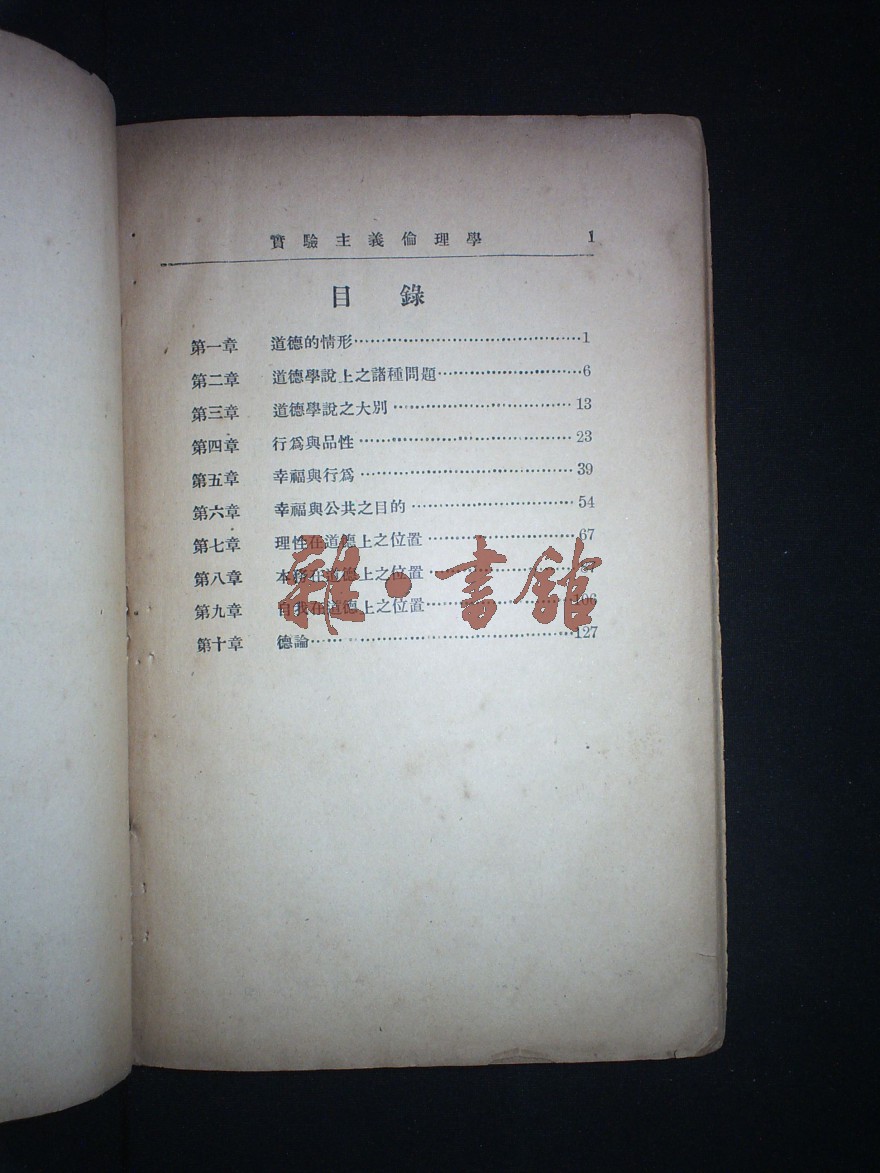 實驗主義倫理學 1
目錄
第一章 道德的情形……………………………………1
第二章 道德學說上之諸種問題………………………6
第三章 道德學說之大別………………………………13
第四章 行爲與品性……………………………………23
第五章 幸福與行爲……………………………………39
第六章 幸福與公共之目的……………………………54
第七章 理性在道德上之位置…………………………67
第八章 本務在道德上之位置…………………………
第九章 自我在道德上之位置…………………………106
第十章 德論……………………………………………127
雜·書館